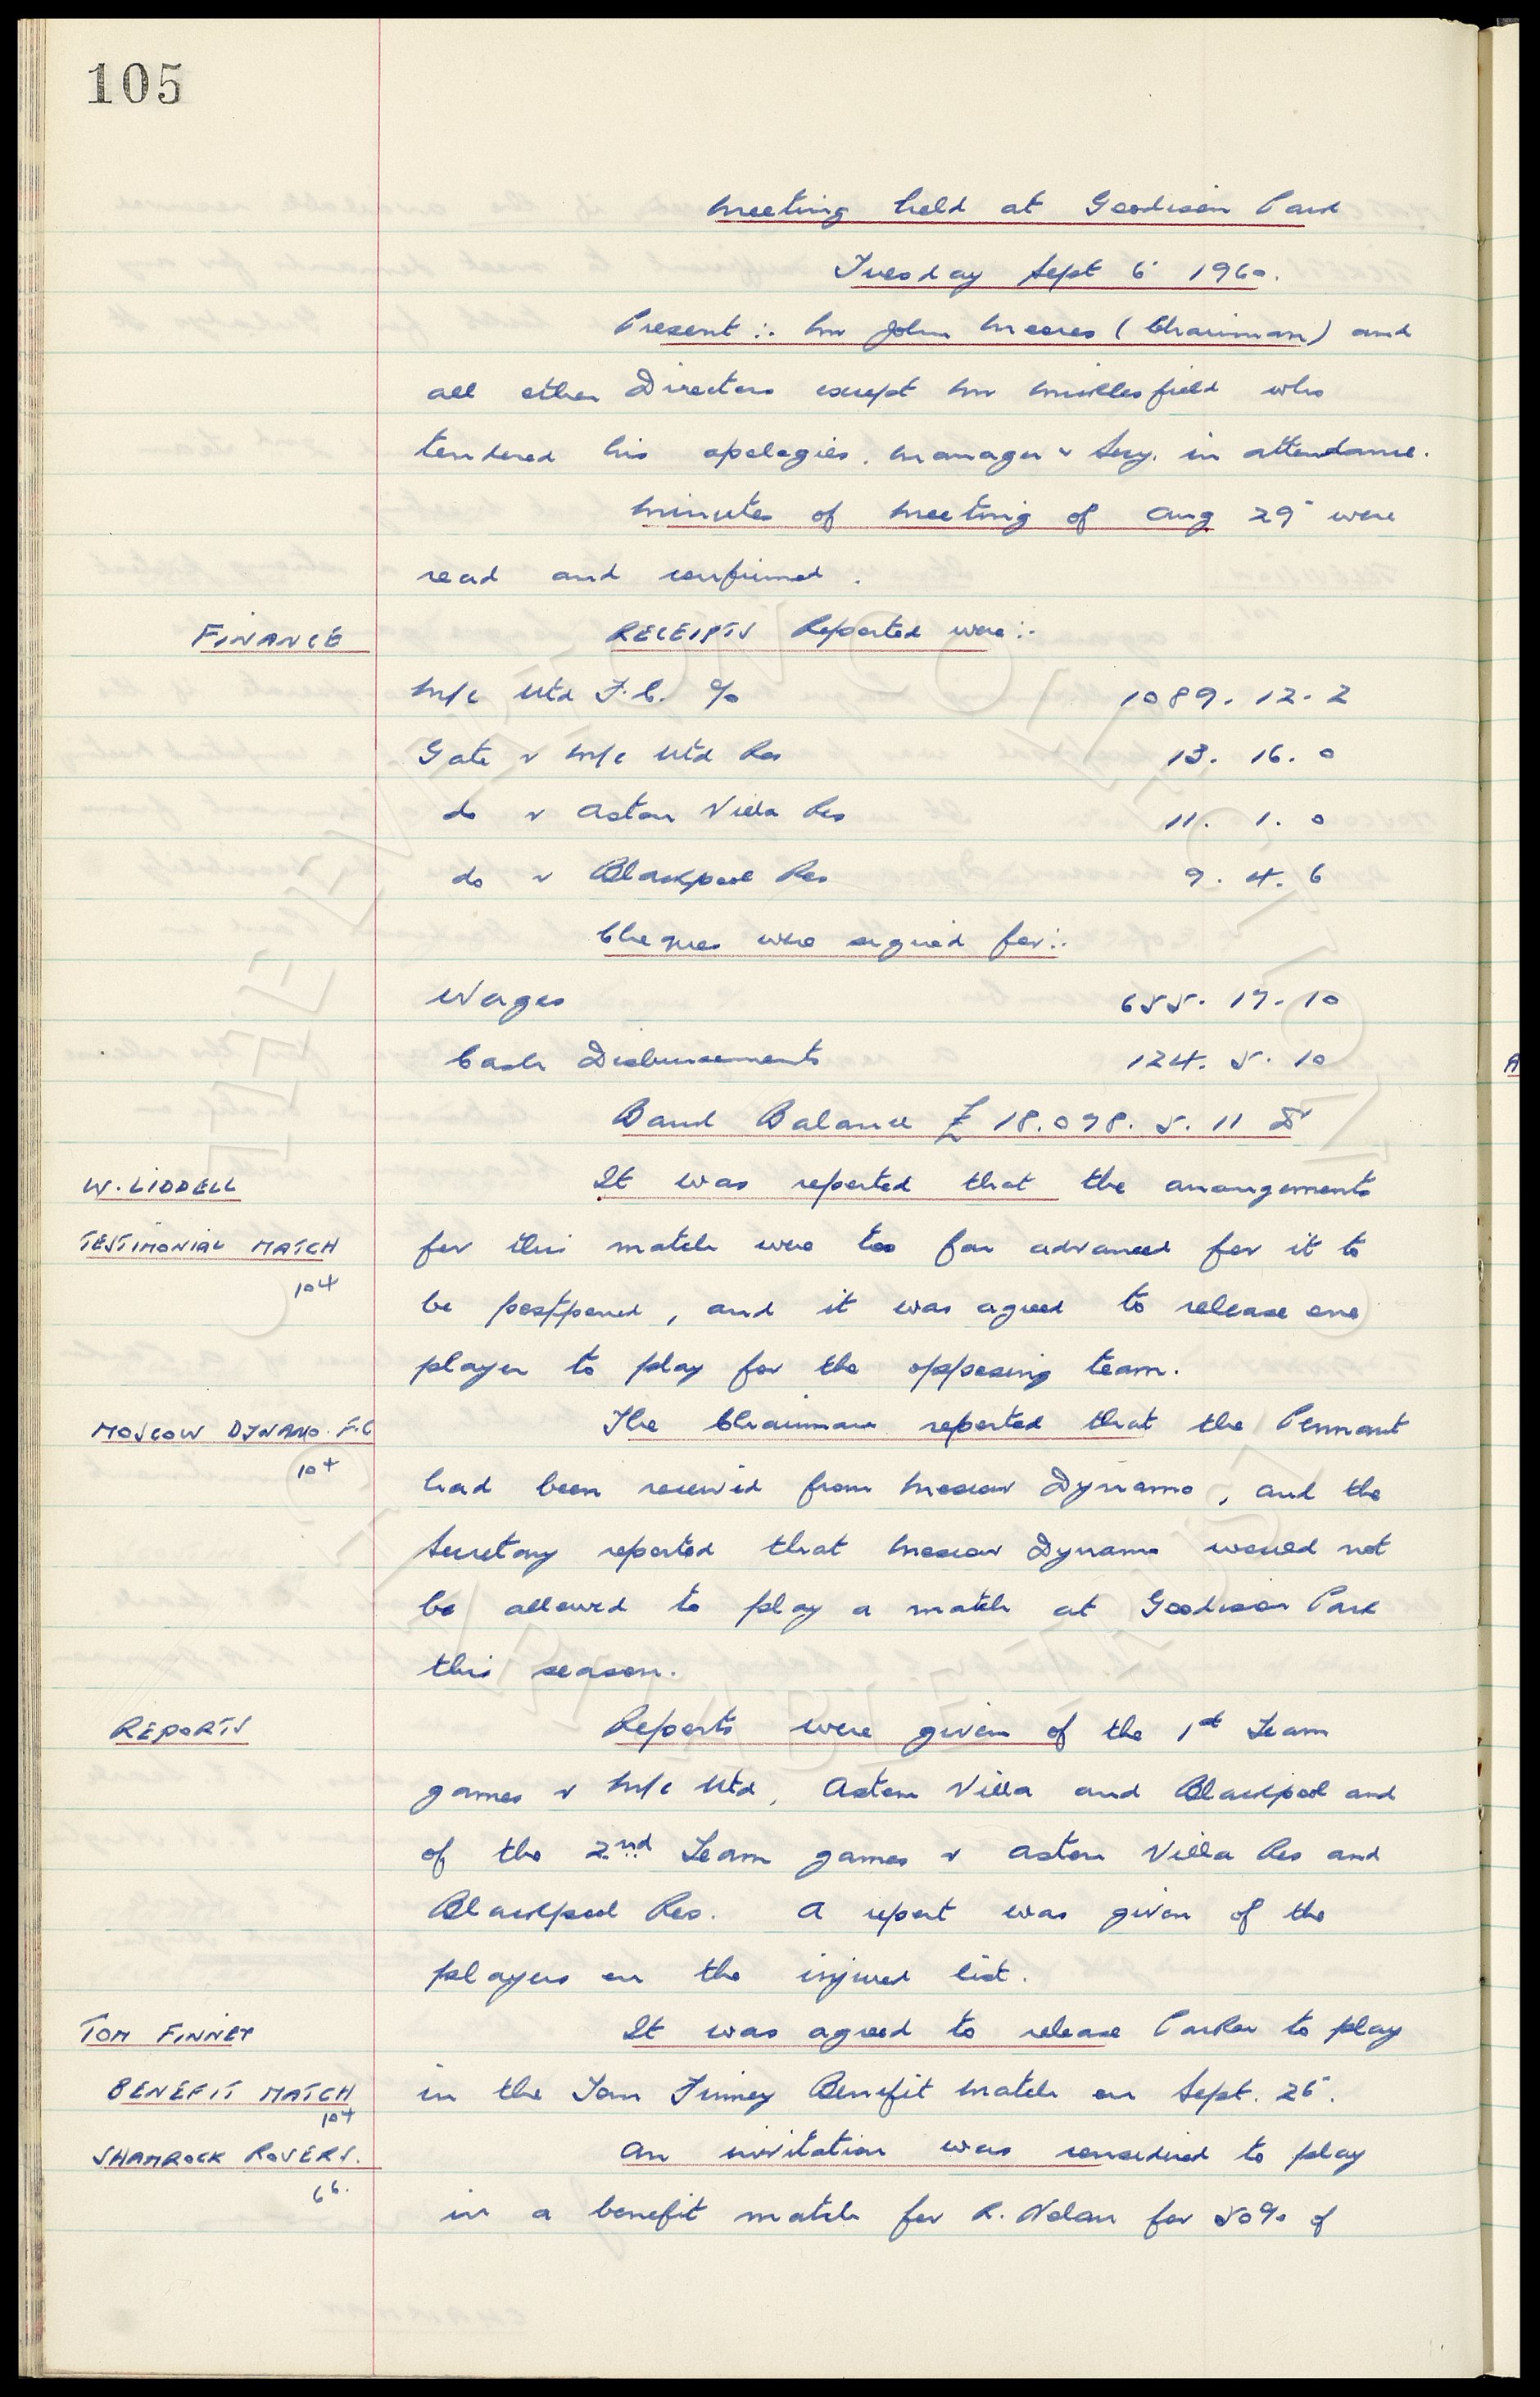 105
Meeting held at Goodison Park
Tuesday Sept 6 1960.
Present :- Mr John Moores (Chairman) and
all other Directors except Mr Micklesfield who
tendered his apologies. Manager & Secy. in attendance.
Minutes of Meeting of Aug 29 were
read and confirmed.
FINANCE
RECEIPTS Reported were :-
M/c Utd F.C. % 1089. 12. 2
Gate v M/c Utd Res 13. 16. 0
do v Aston Villa Res 11. 1. 0
do v Blackpool Res 9. 4. 6
Cheques were signed for :-
Wages 655. 17. 10
Cash Disbursements 124. 5. 10
Bank Balance £18.098. 5. 11 Dr
W. LIDDELL
It was reported that the arrangements
TESTIMONIAL MATCH
104
for this match were too far advanced for it to
be postponed, and it was agreed to release one
player to play for the opposing team.
MOSCOW DYNAMO. F.C
104
The Chairman reported that the Pennant
had been received from Moscow Dynamo, and the
Secretary reported that Moscow Dynamo would not
be allowed to play a match at Goodison Park
this season.
REPORTS
Reports were given of the 1st Team
games v M/c Utd, Aston Villa and Blackpool and
of the 2nd Team games v Aston Villa Res and
Blackpool Res. A report was given of the
players on the injured list.
TOM FINNEY
It was agreed to release Parker to play
BENEFIT MATCH
104
in the Tom Finney Benefit Match on Sept. 26.
SHAMROCK ROVERS.
66.
An invitation was considered to play
in a benefit match for R. Nolan for 50% of